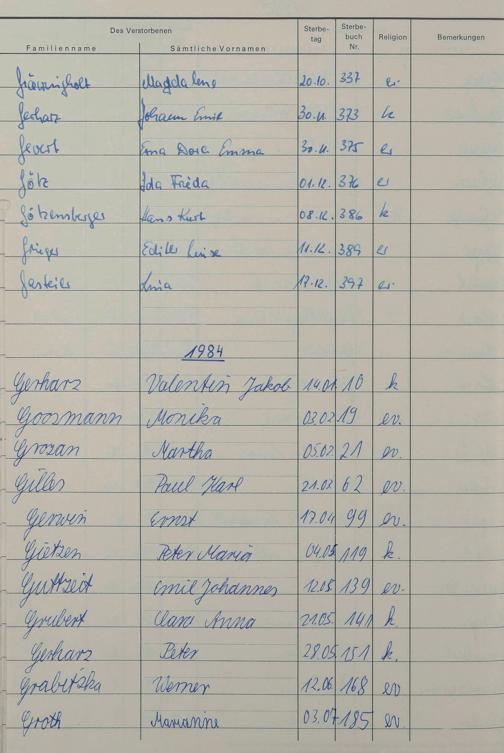 Des Verstorbenen Sterbe- Sterbe- Religion Bemerkungen
Familienname Sämtliche Vornamen tag buch Nr.
Magdalene 20.10. 337 ev
Gerharz Johann Emil 30.11. 373 k
Gevert Erna Dora Emma 30.11. 375 ev
Götz Ida Frieda 01.12. 376 ev
Götzensberger Hans Kurt 08.12. 386 k
Grieger Edith Luise 11.12. 389 ev
Lina 17.12. 397 ev.
1984
Gerharz Valentin Jakob 14.01. 10 k
Goosmann Monika 03.02 19 ev.
Grozan Martha 05.02. 21 ev.
Gilles Paul Karl 21.02 62 ev.
Gerwin Ernst 17.04 99 ev.
Gietzen Peter Maria 04.05 119 k.
Guttzeit Emil Johannes 12.05 139 ev.
Grubert Clara Anna 21.05. 141 k.
Gerharz Peter 28.05 151 k.
Grabitzka Werner 12.06 168 ev
Groth Marianne 03.07 185 ev.